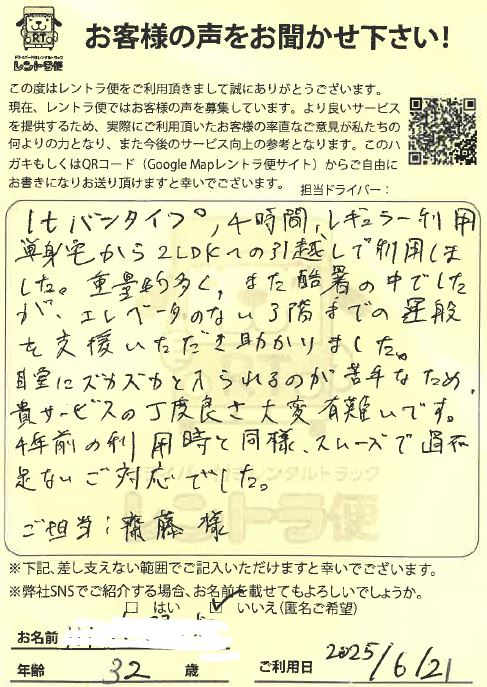 RT
ドライバー付きレンタルトラック
レントラ便
お客様の声をお聞かせ下さい!
この度はレントラ便をご利用頂きまして誠にありがとうございます。
現在、レントラ便ではお客様の声を募集しています。より良いサービス
を提供するため、実際にご利用頂いたお客様の率直なご意見が私たちの
何よりの力となり、また今後のサービス向上の参考となります。このハ
ガキもしくはQRコード（Google Mapレントラ便サイト）からご自由に
お書きになりお送り頂けますと幸いでございます。
担当ドライバー：
1tバンタイプ,4時間,レギュラー利用
単身宅から2LDKへの引越しで利用しま
した。重量物多く、また酷暑の中でした
が、エレベータのない3階までの運搬
を支援いただき助かりました。
自室にズカズカと入られるのが苦手なため、
貴サービスの丁度良さ大変有難いです。
4年前の利用時と同様、スムーズで過不
足ないご対応でした。
ご担当：齋藤様
ドライバー付きレンタルトラック
レントラ便
※下記、差し支えない範囲でご記入いただけますと幸いでございます。
※弊社SNSでご紹介する場合、お名前を載せてもよろしいでしょうか。
□ はい ☑ いいえ（匿名ご希望）
お名前
年齢 32 歳 ご利用日 2025/6/21